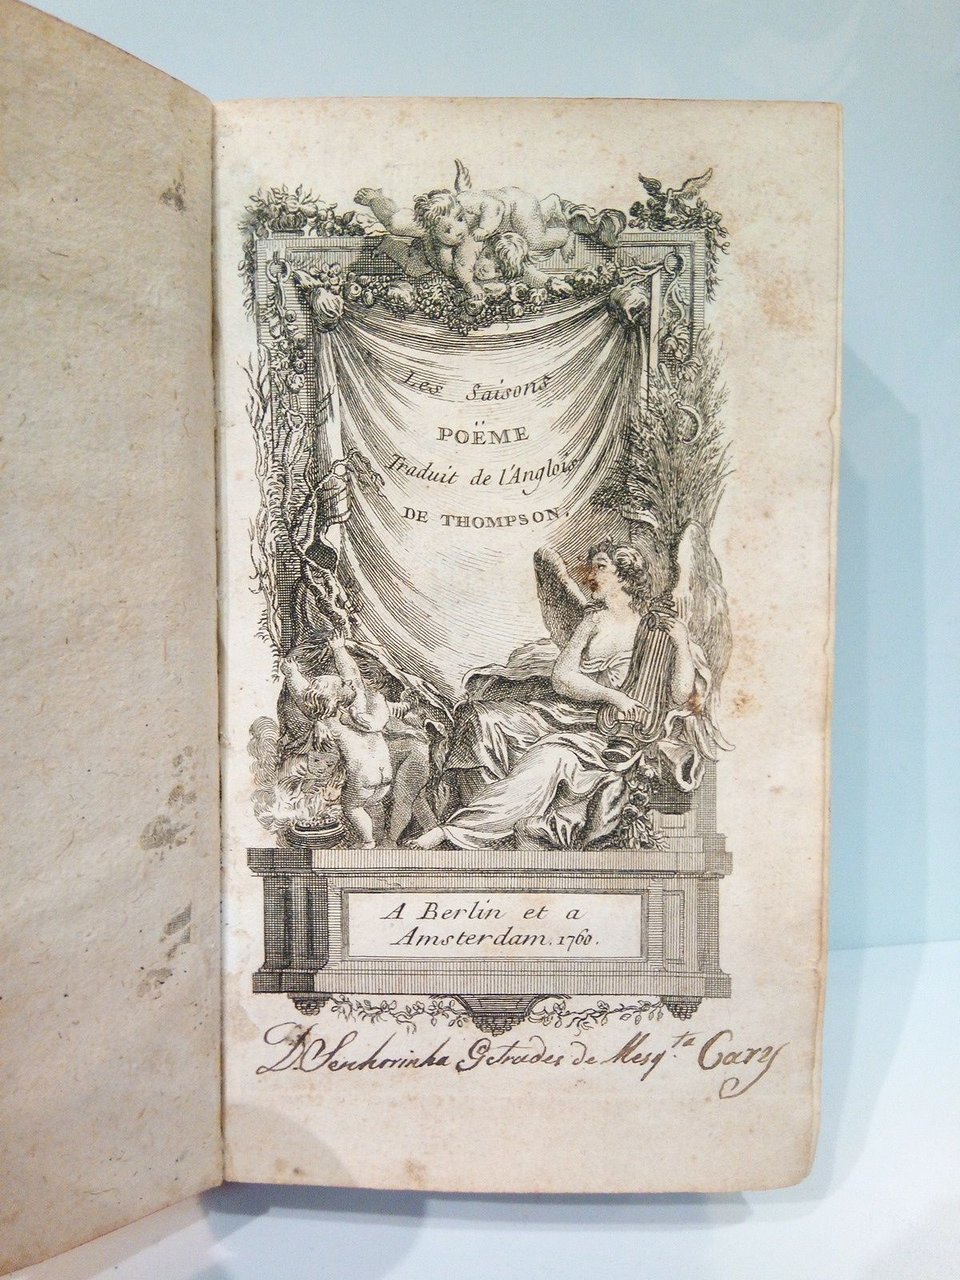 Les Saisons
POËME
Traduit de l'Anglois
DE THOMPSON.
A Berlin et a
Amsterdam. 1760.
D. Senhorinha Getrudes de Mesq.ta Cary